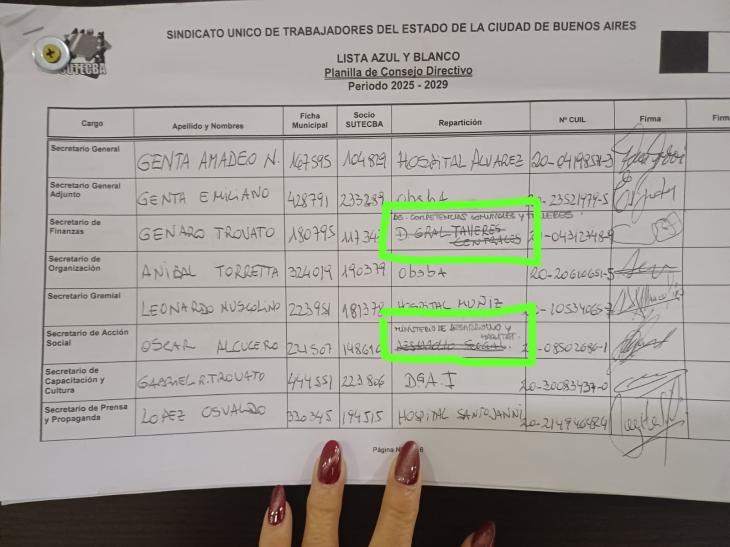 SUTECBA
SINDICATO UNICO DE TRABAJADORES DEL ESTADO DE LA CIUDAD DE BUENOS AIRES
LISTA AZUL Y BLANCO
Planilla de Consejo Directivo
Periodo 2025 - 2029
Cargo Apellido y Nombres Ficha Municipal Socio SUTECBA Repartición Nº CUIL Firma Firm
Secretario General GENTA AMADEO N. 167595 104829 HOSPITAL ALVAREZ
Secretario General Adjunto GENTA EMILIANO 428791 233289 ObsbA
Secretario de Finanzas GENARO TROVATO 180795 DG. COMPETENCIAS COMUNALES Y TALLERES
D GRAL TALLERES CENTRALES
Secretario de Organización ANIBAL TORRETTA 324019 190379 ObsbA
Secretario Gremial LEONARDO MUSCOLINO 223951 HOSPITAL MUÑIZ
Secretario de Acción Social OSCAR ALCUCERO MINISTERIO DE DESARROLLO Y HABITAT.
Secretario de Capacitación y Cultura GABRIEL R. TROVATO 444551 223806 DGA. I
Secretario de Prensa y Propaganda LOPEZ OSVALDO 330345 194515 HOSPITAL SANTOJANNI
Página